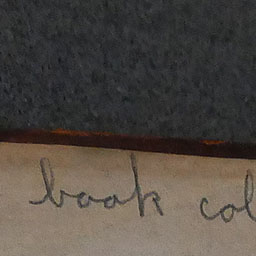 book col